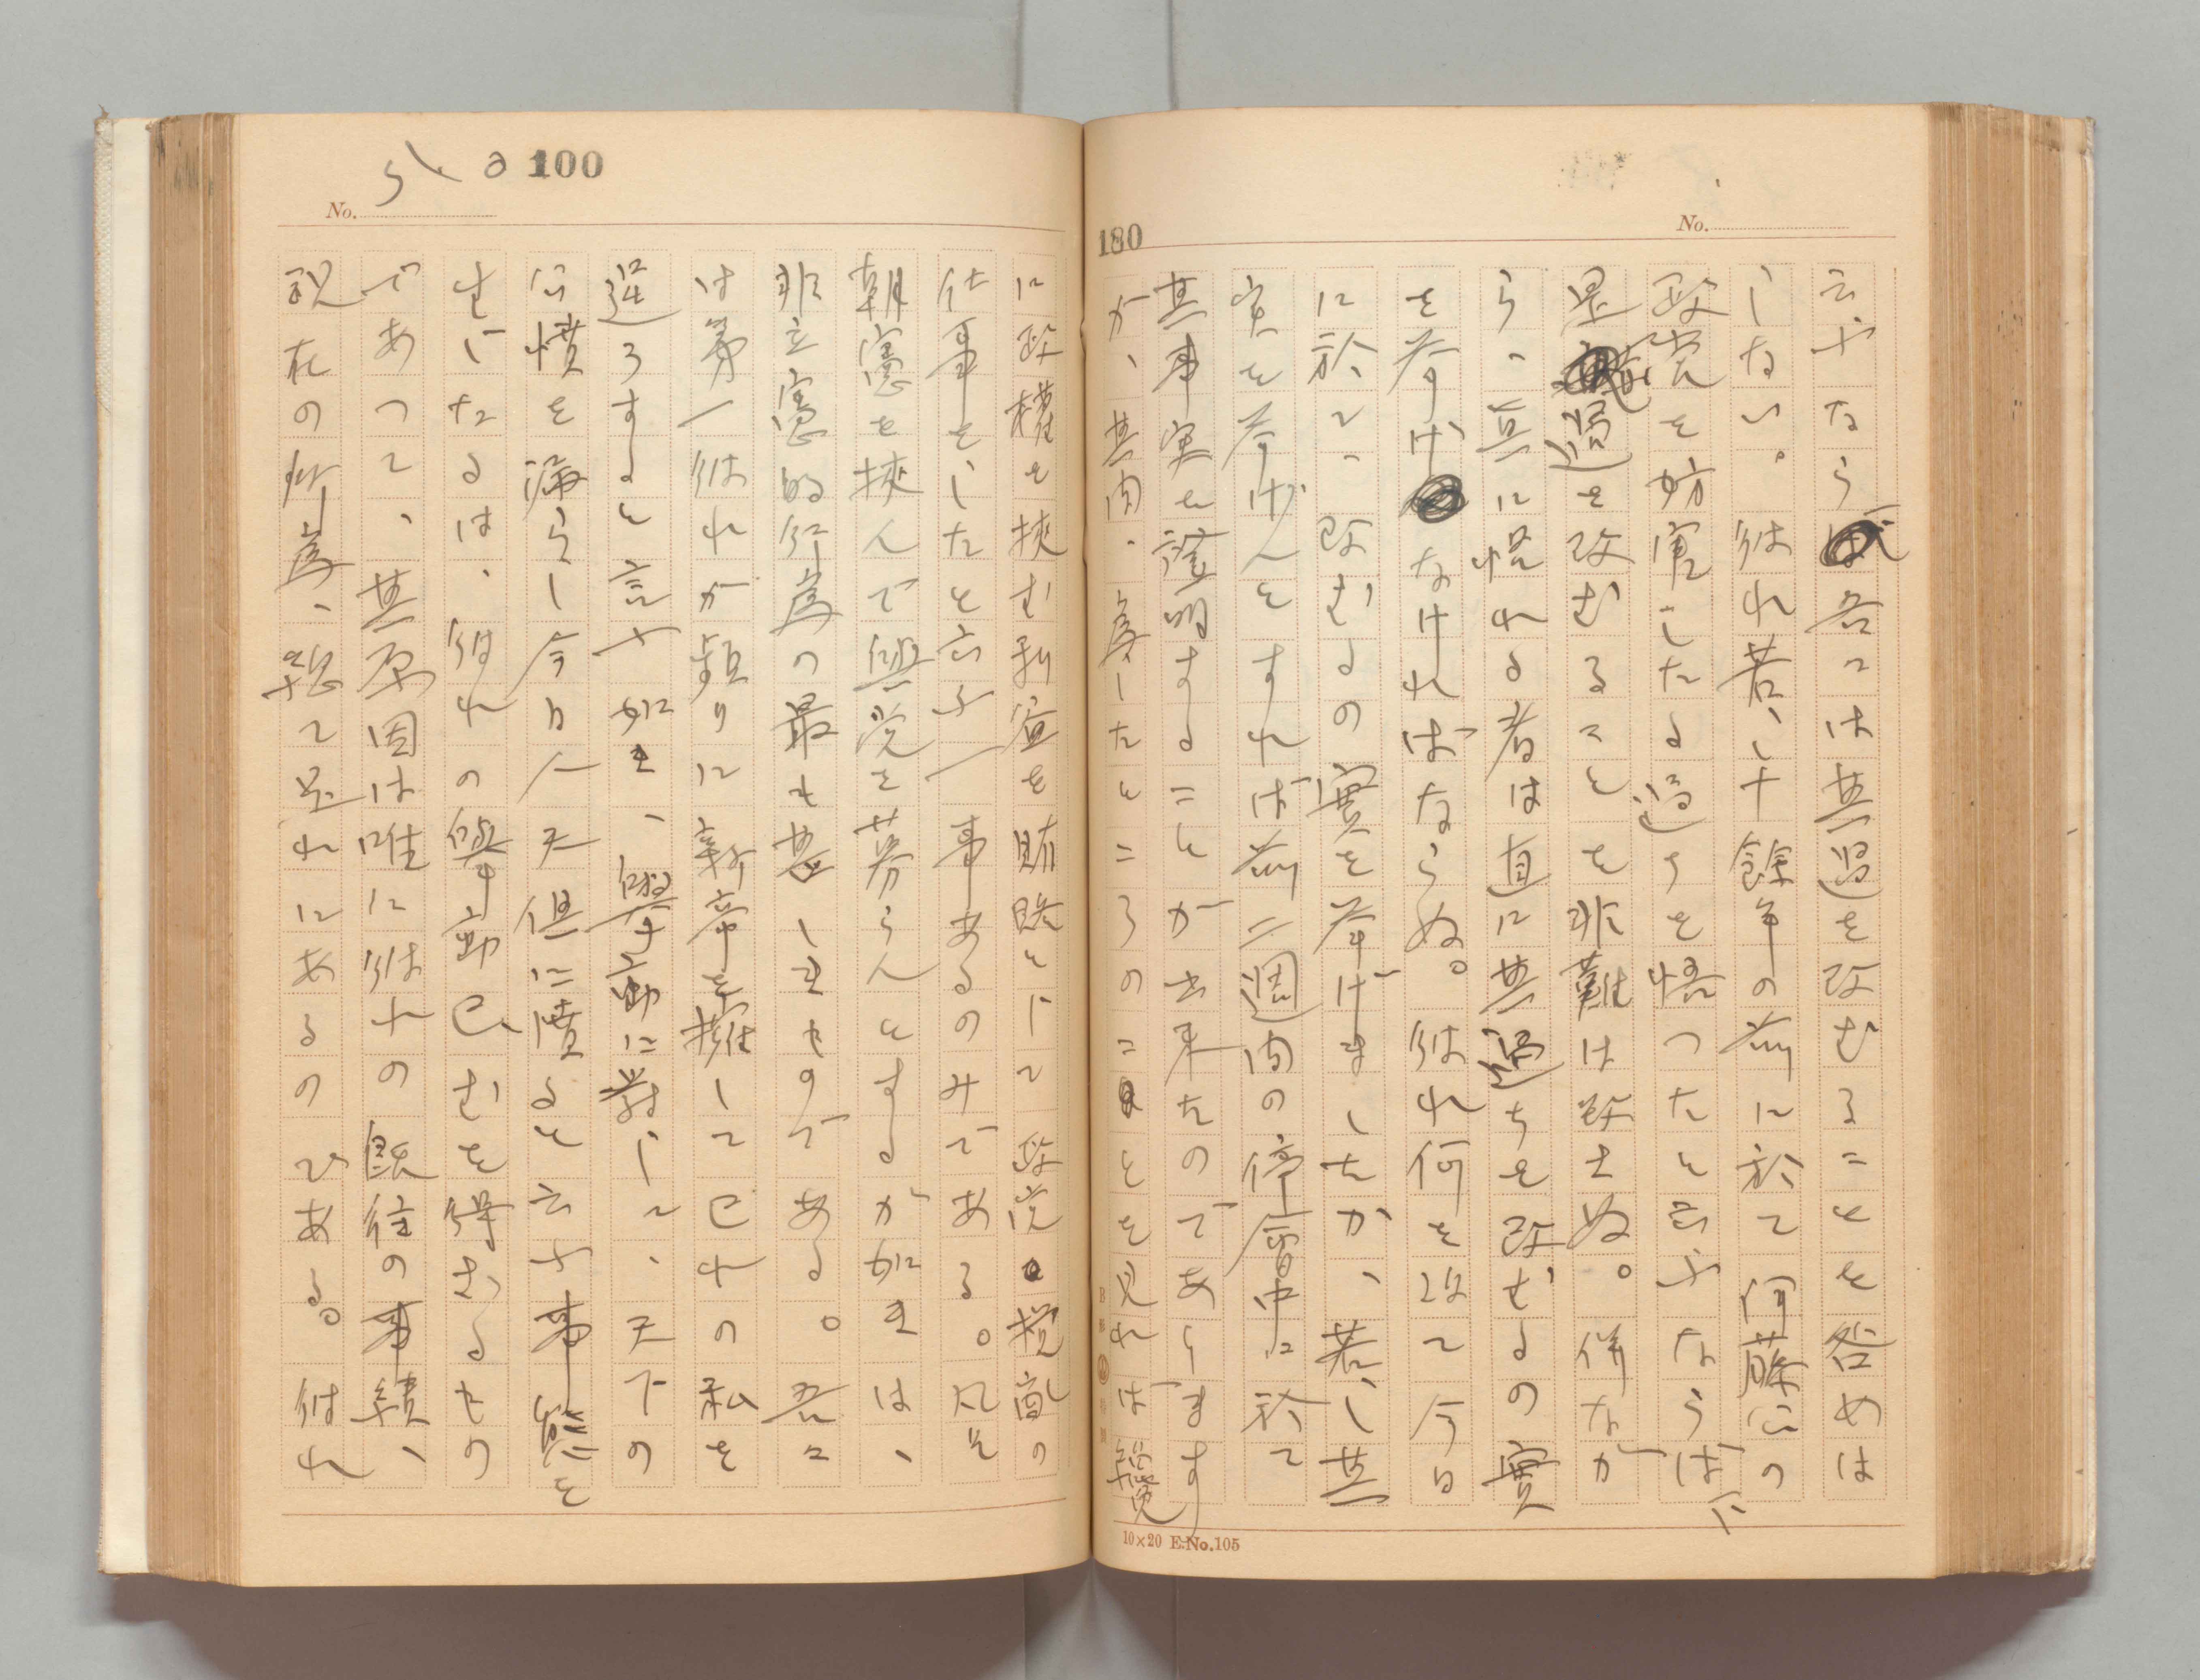 180
No.
云ふなら吾々は其過を改むることを咎めは
しない。彼れ若し十餘年の前に於て伊藤公の
政党を妨害したる過ちを悟つたと云ふならば
過を改むることを非難は致さぬ。併なが
ら、真に悟れる者は直に其過ちを改むるの實
を挙げなければならぬ。彼れ何を以て今日
に於て、改むるの實を挙げましたか、若し其
実を挙げんとすれば前二週间の停會中に於て
其事実を證明することが出来たのであります
が、其间、為したところのことを見れば
10×20 E.No.105
100
No.
に政権を挟む利益を賄賂として政党攪亂の
仕事をしたと云ふ一事あるのみである。凡そ
朝憲を挟んで與党を募らんとするが如きは、
非立憲的行為の最も甚しきものである。吾々
は第一彼れが頻りに新帝を擁して己れの私を
逞ろすると言ふ如き、擧動に對して、天下の
公憤を漏らし今日人天倶に憤ると云ふ事態を
生じたるは、彼れの擧動已むを得ざるもの
であつて、其原因は唯に彼れの既往の事績、
現在の所為、総て是れにあるのである。彼れ